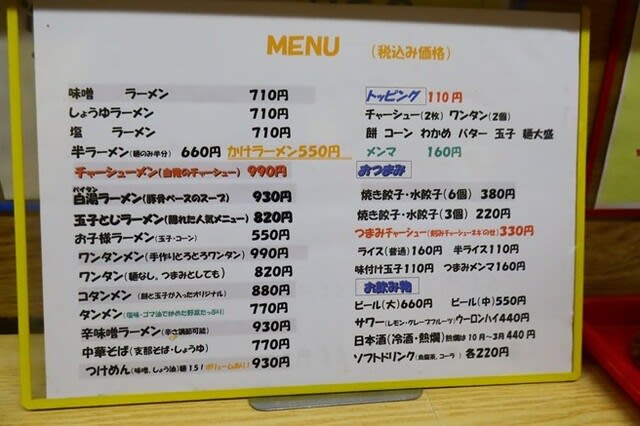 MENU (税込み価格)
味噌 ラーメン 710円
しょうゆラーメン 710円
塩 ラーメン 710円
半ラーメン(麺のみ半分) 660円 かけラーメン550円
チャーシューメン(自慢のチャーシュー) 990円
パイタン
白湯ラーメン(豚骨ベースのスープ) 930円
玉子とじラーメン(隠れた人気メニュー) 820円
お子様ラーメン(玉子・コーン) 550円
ワンタンメン(手作りとろとろワンタン) 990円
ワンタン(麺なし,つまみとしても) 820円
コタンメン(餅と玉子が入ったオリジナル) 880円
タンメン(塩味・ゴマ油で炒めた野菜たっぷり) 770円
辛味噌ラーメン(辛さ調節可能) 930円
中華そば(支那そば・しょうゆ) 770円
つけめん(味噌,しょう油)麺1.5!ボリュームあり! 930円
トッピング 110円
チャーシュー(2枚) ワンタン(2個)
餅 コーン わかめ バター 玉子 麺大盛
メンマ 160円
おつまみ
焼き餃子・水餃子(6個) 380円
焼き餃子・水餃子(3個) 220円
つまみチャーシュー(刻みチャーシューネギのせ)330円
ライス(普通)160円 半ライス110円
味付け玉子110円 つまみメンマ160円
お飲み物
ビール(大)660円 ビール(中)550円
サワー(レモン・グレープフルーツ)ウーロンハイ440円
日本酒(冷酒・熱燗)熱燗は10月~3月440円
ソフトドリンク(烏龍茶、コーラ) 各220円